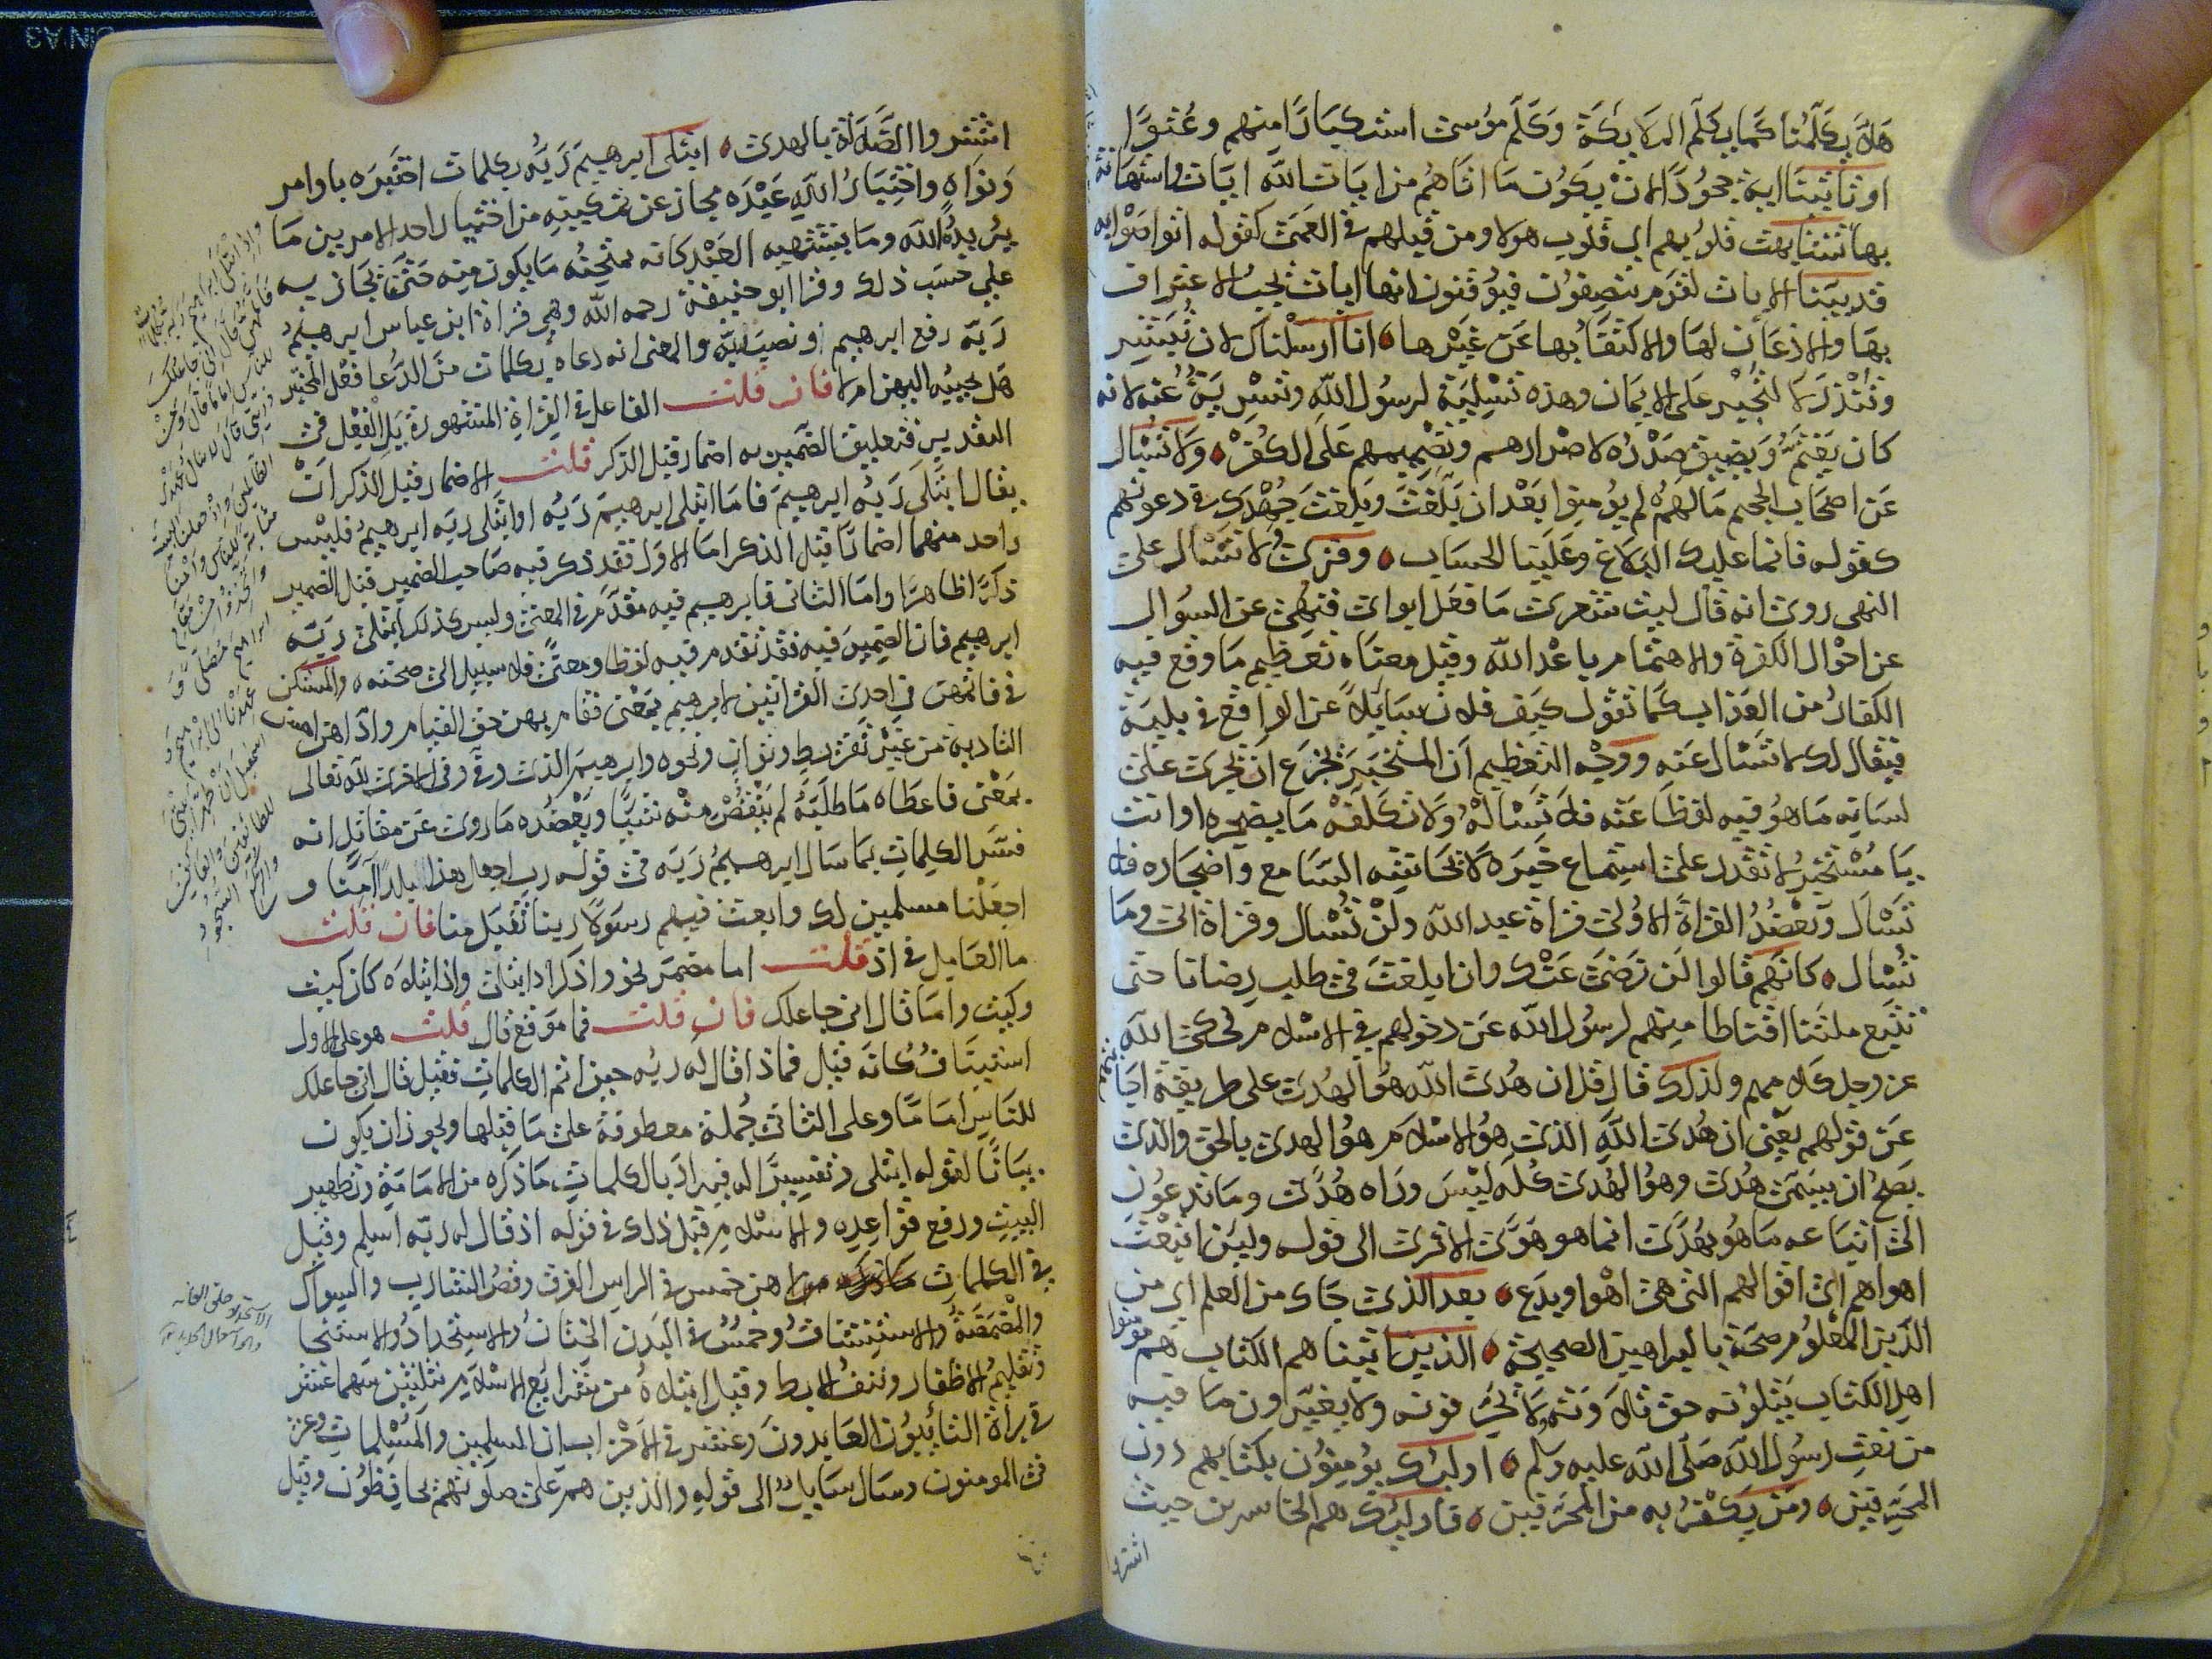 هلا يكلمنا كما يكلم الملايكة وكلم موسى استكبارا منهم وعتوا
او تاتينا اية جحودا لان يكون ما اتاهم من ايات الله ايات واستهانة
بها تشابهت قلوبهم اي قلوب هولا ومن قبلهم في العمى كقوله اتواصوا به
قد بينا الايات لقوم ينصفون فيوقنون انها ايات يجب الاعتراف
بها والاذعان لها والاكتفا بها عن غيرها انا ارسلناك لان تبشر
وتنذر لا لتجبر على الايمان وهذه تسلية لرسول الله وتسرية عنه لانه
كان يغتم ويضيق صدره لاصرارهم وتصميمهم على الكفر ولا تسال
عن اصحاب الجحيم ما لهم لم يومنوا بعد ان بلغت وبلغت جهدك في دعوتهم
كقوله فانما عليك البلاغ وعلينا الحساب وقرئ ولا تسال على
النهي روى انه قال ليت شعري ما فعل ابواي فنهى عن السوال
عن احوال الكفرة والاهتمام باعدا الله وقيل معناه تعظيم ما وقع فيه
الكفار من العذاب كما تقول كيف فلان سايلا عن الواقع في بلية
فيقال لك لا تسال عنه ووجه التعظيم ان المستخبر يجزع ان يجري على
لسانه ما هو فيه لفظاعته فلا تساله ولا تكلفه ما يضجره او انت
يا مستخبر لا تقدر على استماع خبره لايحاشه السامع واضجاره فلا
تسال ويعضد القراة الاولى قراة عبد الله ولن تسال وقراة ابي وما
تسال كانهم قالوا لن نرضى عنك وان ابلغت في طلب رضانا حتى
تتبع ملتنا اقناطا منهم لرسول الله عن دخولهم في الاسلام فحكى الله
عز وجل كلامهم ولذلك قال قل ان هدى الله هو الهدى على طريقة اجابتهم
عن قولهم يعني ان هدى الله الذي هو الاسلام هو الهدى بالحق والذي
يصح ان يسمى هدى وهو الهدى كله ليس وراه هدى وما تدعون
الى اتباعه ما هو بهدى انما هو هوى الا ترى الى قوله ولين اتبعت
اهواهم اي اقوالهم التي هي اهوا وبدع بعد الذي جاك من العلم اي من
الدين المعلوم صحته بالبراهين الصحيحة الذين اتيناهم الكتاب هم مومنوا
اهل الكتاب يتلونه حق تلاوته لا يحرفونه ولا يغيرون ما فيه
من نعت رسول الله صلى الله عليه وسلم اوليك يومنون بكتابهم دون
المحرفين ومن يكفر به من المحرفين فاوليك هم الخاسرون حيث
اشتروا
اشتروا الضلالة بالهدى ابتلى ابرهيم ربه بكلمات اختبره باوامر
ونواه واختبار الله عبده مجاز عن تمكينه من اختيار احد الامرين ما
يريده الله وما يشتهيه العبد كانه يمتحنه ما يكون منه حتى يجازيه
على حسب ذلك وقرا ابو حنيفة رحمه الله وهي قراة ابن عباس ابرهيم
ربه رفع ابرهيم ونصب ربه والمعنى انه دعاه بكلمات من الدعا فعل المختبر
هل يجيبه اليهن ام لا فان قلت الفاعل في القراة المشهورة يلي الفعل في
التقدير فتعليق الضمير به اضمار قبل الذكر قلت الاضمار قبل الذكر ان
يقال ابتلى ربه ابرهيم فاما ابتلى ابرهيم ربه او ابتلى ربه ابرهيم فليس
واحد منهما اضمارا قبل الذكر اما الاول فقد ذكر فيه صاحب الضمير قبل الضمير
ذكرا ظاهرا واما الثاني فابرهيم فيه مقدم في المعنى وليس كذلك ابتلى ربه
ابرهيم فان الضمير فيه قد تقدم فيه لفظا ومعنى فلا سبيل الى صحته والمستكن
في فاتمهن في احدى القراتين لابرهيم بمعنى فقام بهن حق القيام واداهن احسن
التادية من غير تفريط وتوان ونحوه وابرهيم الذي وفي وفي الاخرى لله تعالى
بمعنى فاعطاه ما طلبه لم ينقص منه شيا ويعضده ما روى عن مقاتل انه
فسر الكلمات بما سال ابرهيم ربه في قوله رب اجعل هذا بلدا آمنا و
اجعلنا مسلمين لك وابعث فيهم رسولا ربنا تقبل منا فان قلت
ما العامل في اذ قلت اما مضمر نحو واذكر اذ ابتلى واذ ابتلاه كان كيت
وكيت واما قال اني جاعلك فان قلت فما موقع قال قلت هو على الاول
استيناف كانه قيل فماذا قال له ربه حين اتم الكلمات فقيل قال اني جاعلك
للناس اماما وعلى الثاني جملة معطوفة على ما قبلها ويجوز ان يكون
بيانا لقوله ابتلى وتفسيرا له فيراد بالكلمات ما ذكره من الامامة وتطهير
البيت ورفع قواعده والاسلام قبل ذلك في قوله اذ قال له ربه اسلم وقيل
في الكلمات هن خمس في الراس الفرق وقص الشارب والسواك
والمضمضة والاستنشاق وخمس في البدن الختان والاستحداد والاستنجا
وتقليم الاظفار ونتف الابط وقيل ابتلاه من شرايع الاسلام بثلثين سهما عشر
في براة التايبون العابدون وعشر في الاحزاب ان المسلمين والمسلمات وعشر
في المومنون وسال سايل الى قوله والذين هم على صلوتهم يحافظون وقيل